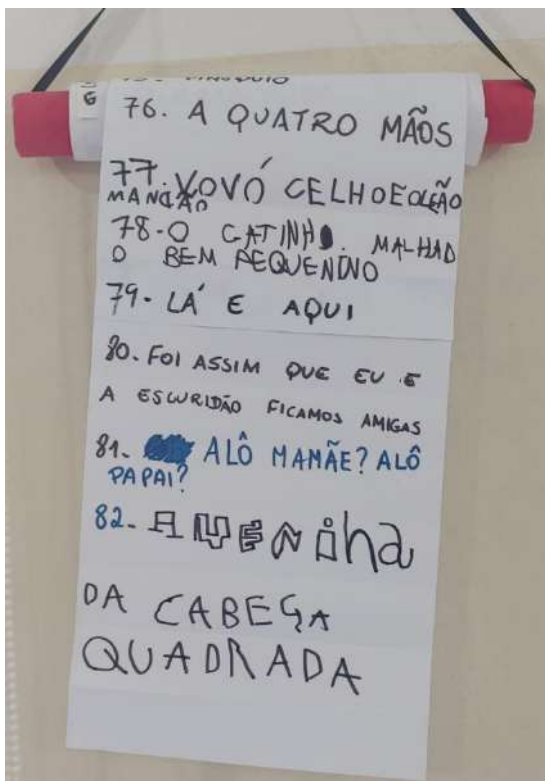 G
76. A QUATRO MÃOS
77. VOVÓ CELHOEOLEÃO
MANCÃO
78-O GATINHO. MALHAD
O BEM PEQUENINO
79- LÁ E AQUI
80. FOI ASSIM QUE EU E
A ESCURIDÃO FICAMOS AMIGAS
81- ALÔ MAMÃE? ALÔ
PAPAI?
82-
DA CABEÇA
QUADRADA